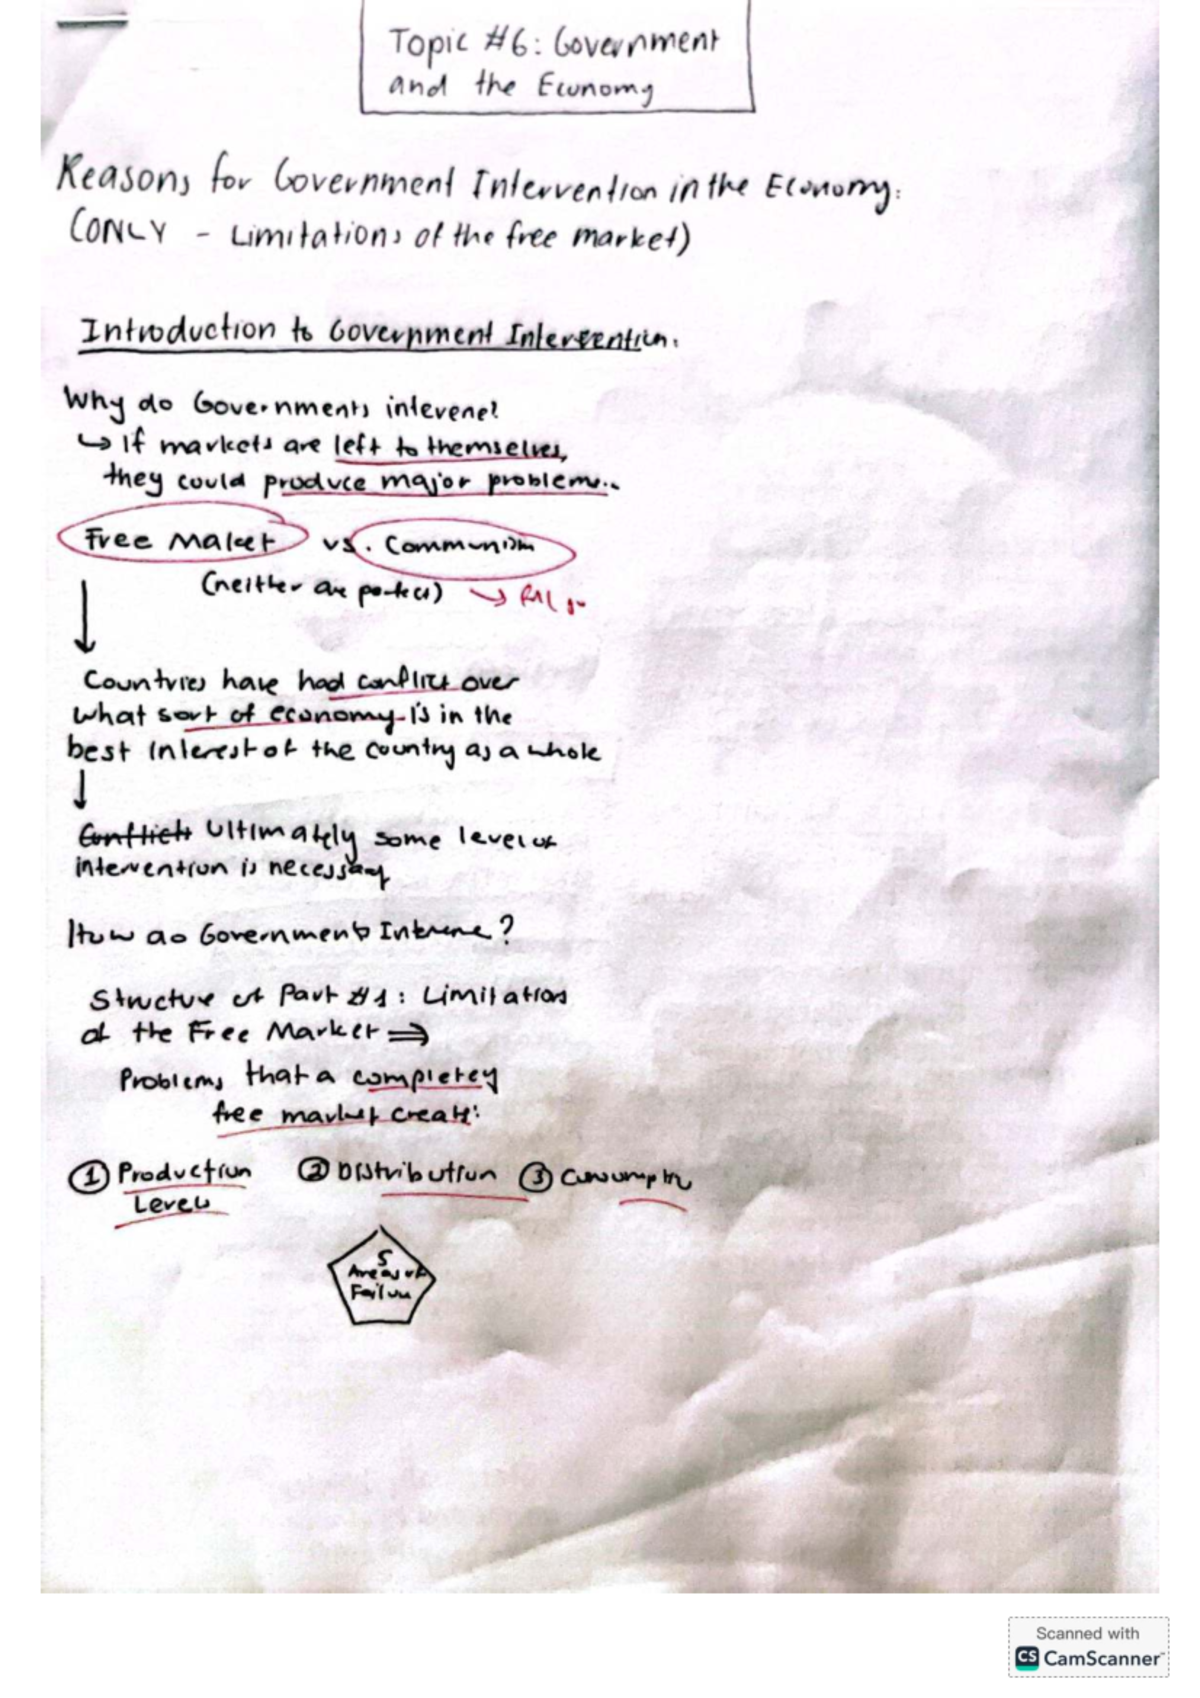 Topic #6: Government
and the Economy
Reasons for Government Intervention in the Economy:
(ONLY - Limitations of the free market)
Introduction to Government Intervention:
Why do Governments intevene?
↳ If markets are left to themselves,
they could produce major problems..
Free Market vs. Communism
(neither are perfect)
↓
Countries have had conflict over
what sort of economy is in the
best interest of the country as a whole
↓
Conflicts Ultimately some level of
intervention is necessary
How do Governments Intervene?
Structure of Part #1: Limitations
of the Free Market ⇒
Problems that a completey
free market creats:
① Production ② Distribution ③ Consumption
Levels
5
Areas of
Failure
Scanned with
CS CamScanner